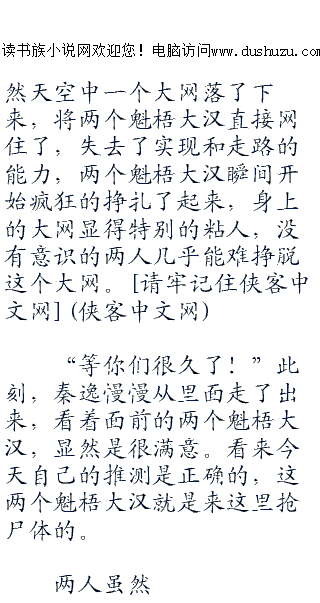 读书族小说网欢迎您！电脑访问www.dushuzu.com
然天空中一个大网落了下
来，将两个魁梧大汉直接网
住了，失去了实现和走路的
能力，两个魁梧大汉瞬间开
始疯狂的挣扎了起来，身上
的大网显得特别的粘人，没
有意识的两人几乎能难挣脱
这个大网。[请牢记住侠客中
文网] (侠客中文网)
“等你们很久了！”此
刻，秦逸慢慢从里面走了出
来，看着面前的两个魁梧大
汉，显然是很满意。看来今
天自己的推测是正确的，这
两个魁梧大汉就是来这里抢
尸体的。
两人虽然